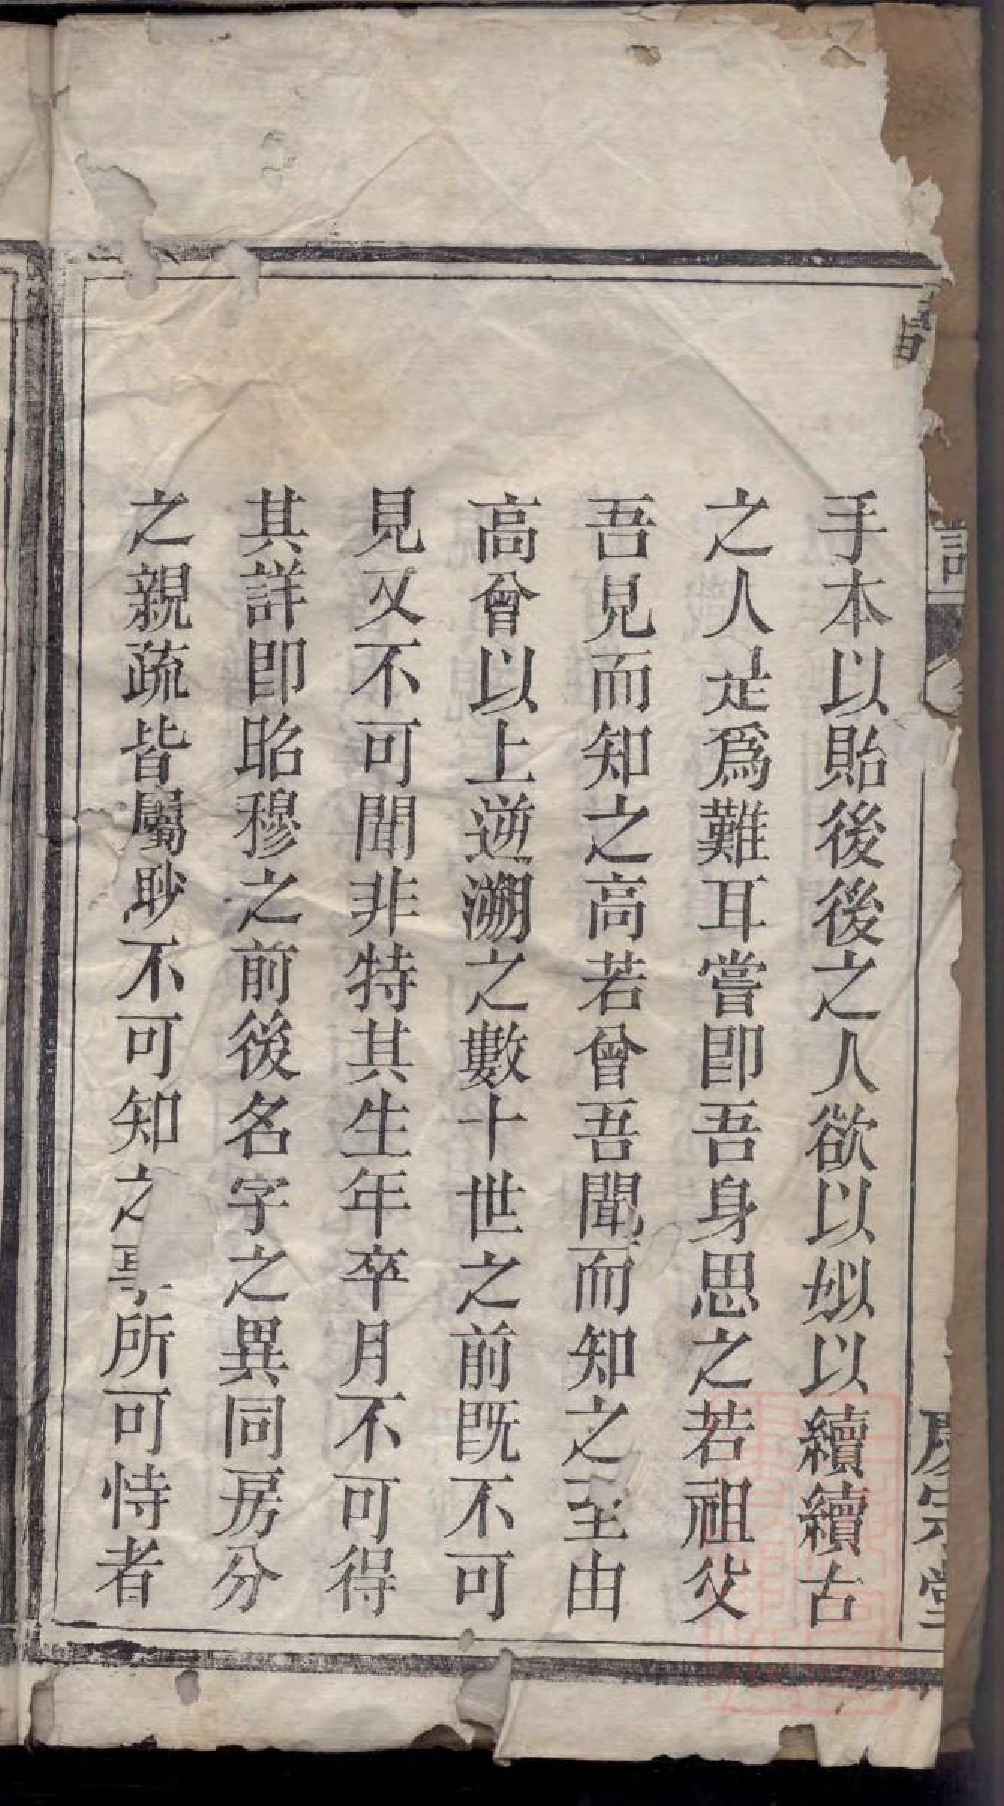 手本以貽後後之人欲以姒以續續古
之人是爲難耳嘗卽吾身思之若祖父
吾見而知之高若曾吾聞而知之至由
高曾以上逆溯之數十世之前旣不可
見又不可聞非特其生年卒月不可得
其詳卽昭穆之前後名字之異同房分
之親疏皆屬眇不可知之事所可恃者
譜
慶宗堂